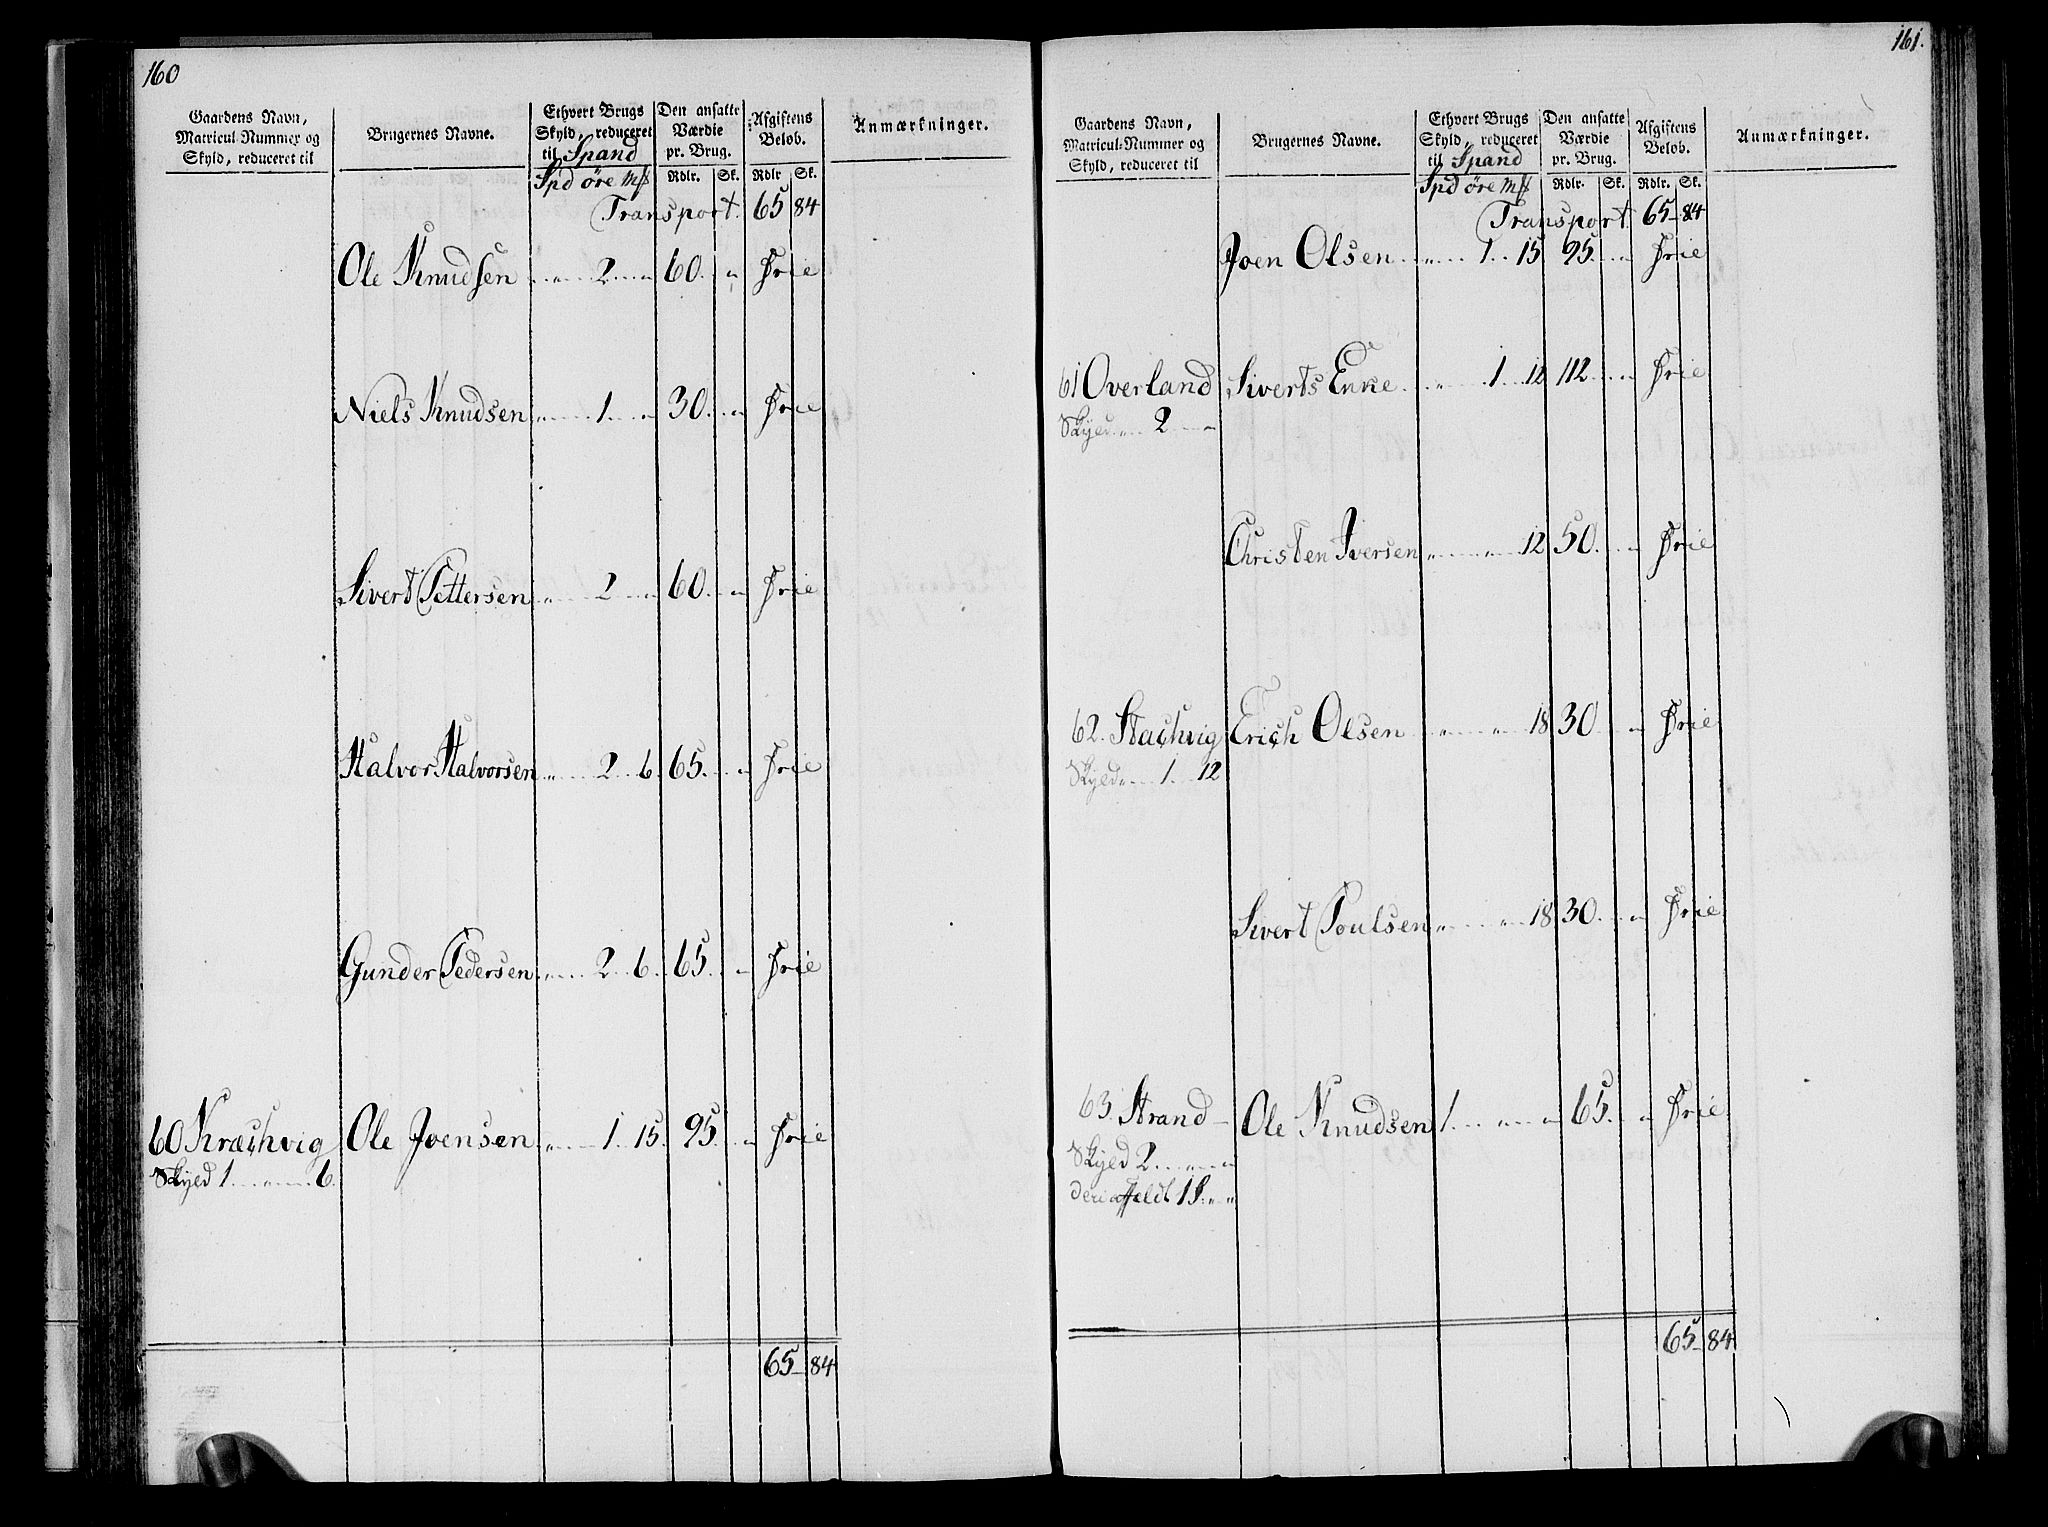 160
Gaardens Navn, Matricul-Nummer og Skyld, reduceret til
Brugernes Navne.
Ethvert Brugs Skyld, reduceret til Spand
Den ansatte Værdie pr. Brug.
Afgiftens Beløb.
Anmærkninger.
Spd öre Mß Rdlr. Sk. Rdlr Sk.
Transport. 65 84
Ole Knudsen „ 2 „ 60. „ Frie
Niels Knudsen „ 1 „ 30. „ Frie
Sivert Pettersen „ 2 „ 60. „ Frie
Halvor Halvorsen „ 2 6. 65. „ Frie
Gunder Pedersen „ 2 6. 65. „ Frie
60 Kræchvig Ole Joensen „ 1 15. 95. „ Frie
Skyld 1 „ 6.
65 84
161.
Gaardens Navn, Matricul-Nummer og Skyld, reduceret til
Brugernes Navne.
Ethvert Brugs Skyld, reduceret til Spand
Den ansatte Værdie pr. Brug.
Afgiftens Beløb.
Anmærkninger.
Spd öre Mß Rdlr. Sk. Rdlr. Sk.
Transport. 65 84
Joen Olsen „ 1 15 95. „ Frie
61 Overland Siverts Enke „ 1 12 112 „ Frie
Skyld „ 2 „
Christen Iversen „ „ 12 50. „ Frie
62. Stachvig Erich Olsen „ „ 18 30. „ Frie
Skyld „ 1 12
Sivert Poulsen „ „ 18 30. „ Frie
63. Strand Ole Knudsen 1 „ „ 65. „ Frie
Skyld 2 „ „
65 84